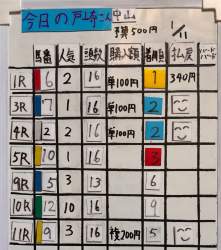 今日の戸崎さん 中山
予算500円 1/11
馬番 人気 頭数 購入額 着順 払戻
1R 6 2 16 単100円 1 340円
3R 7 1 16 単100円 2
4R 2 2 16 単100円 2
5R 10 1 16 3
9R 5 3 13 6
10R 12 10 16 9
11R 9 3 16 複200円 5